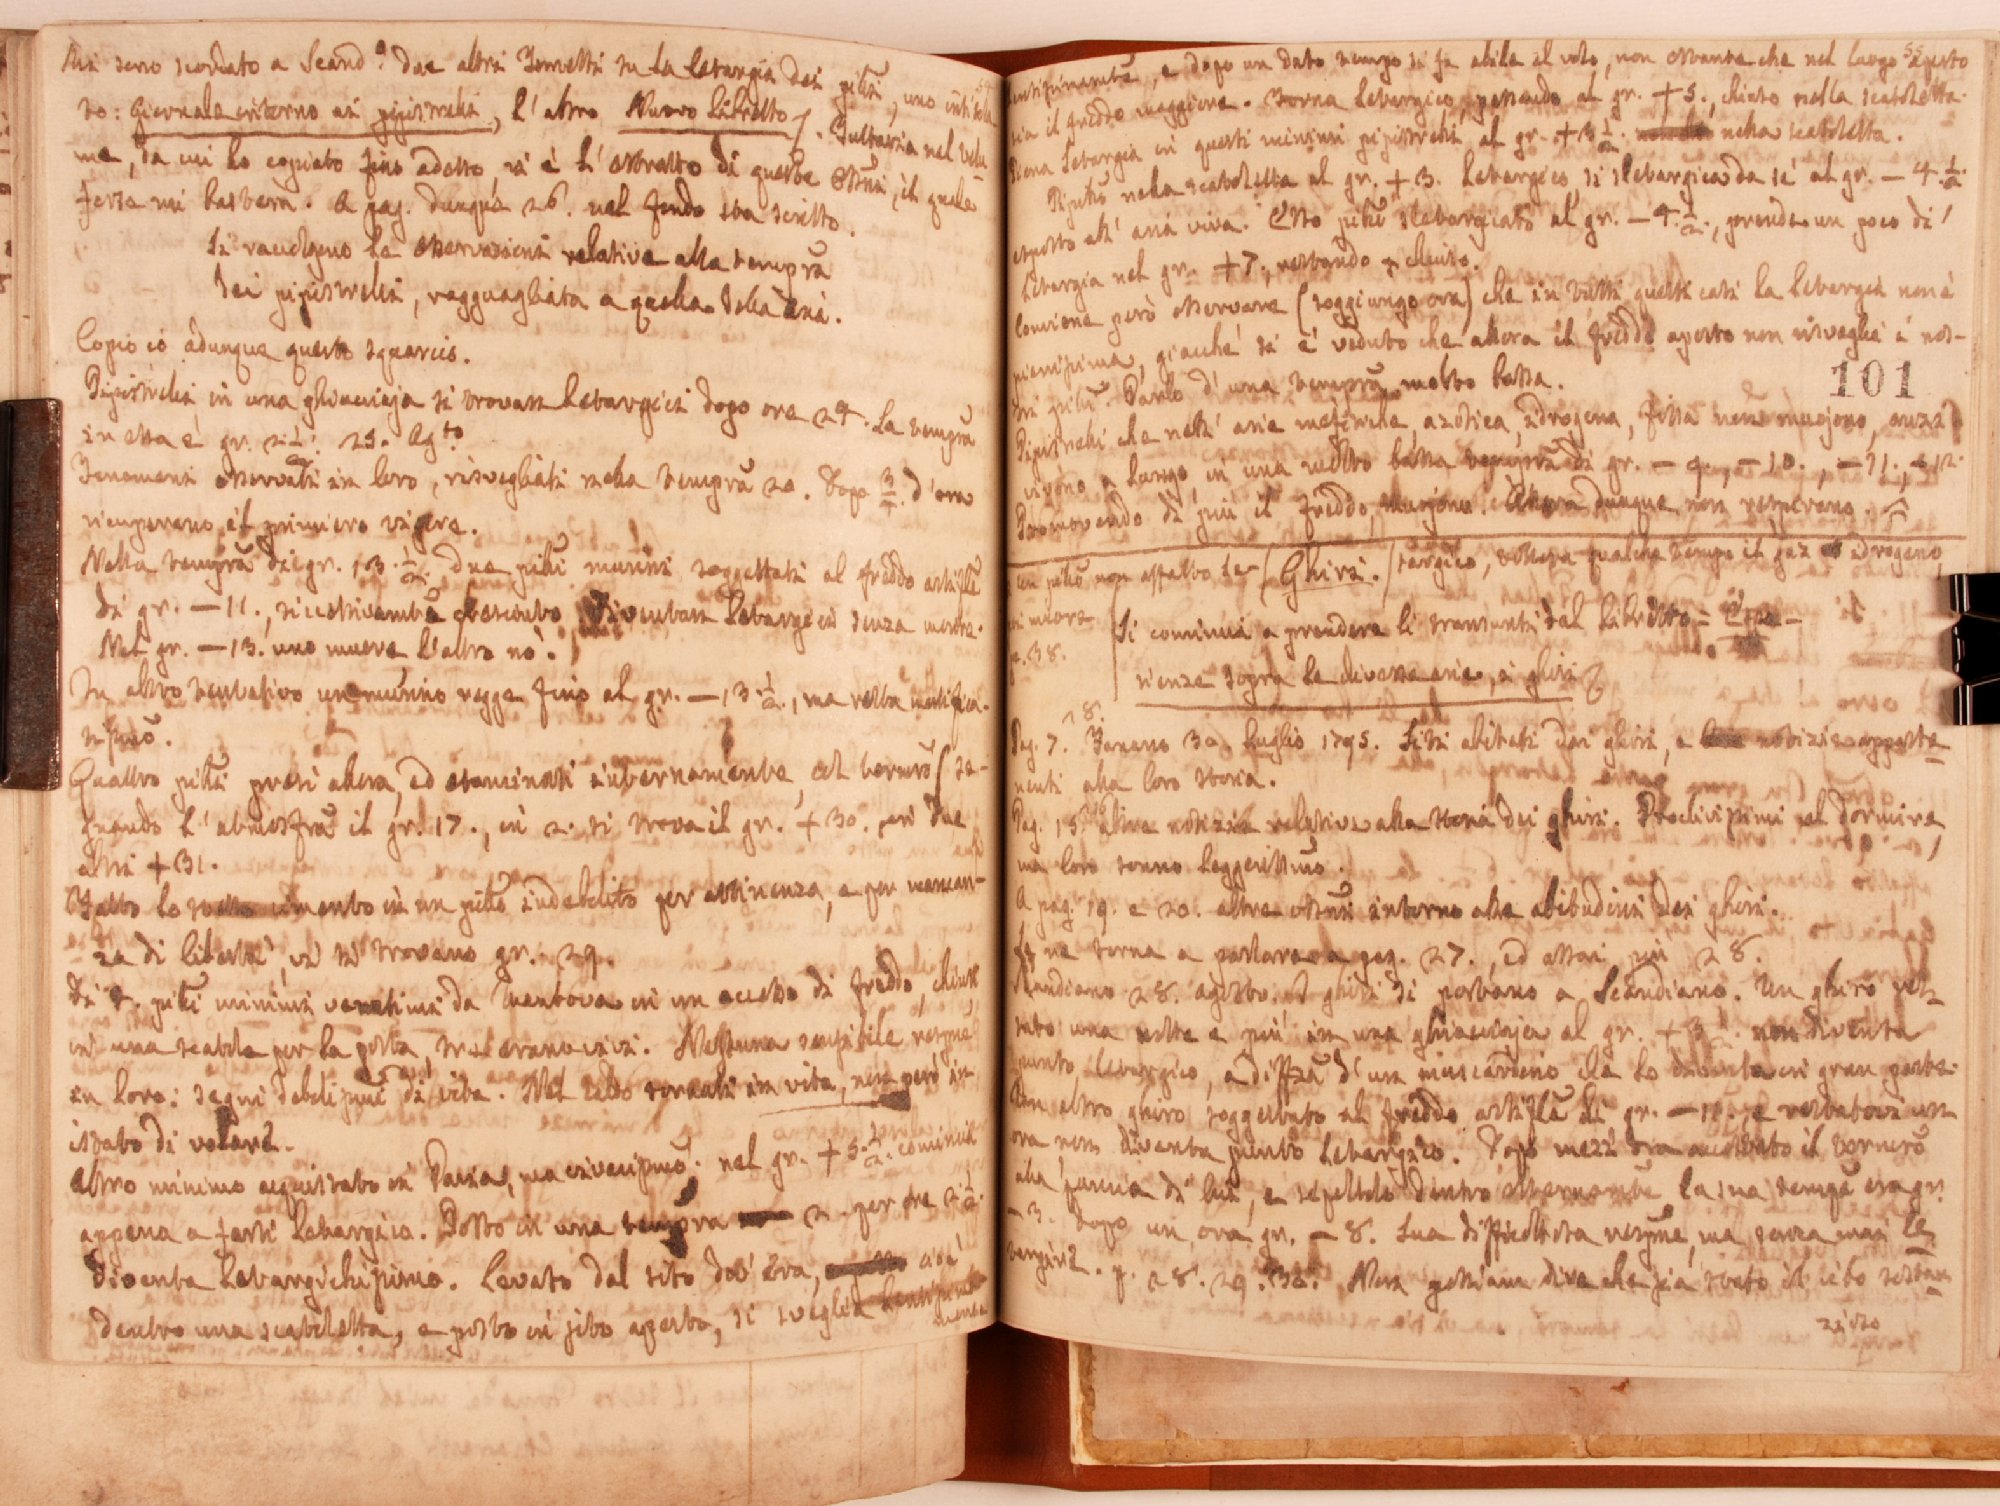 Mi sono scordato a Scand.º due altri Tometti su la letargia dei pipñi, uno intitola
to: Giornale intorno ai pipistrelli, l'altro Nuovo Libretto. Tuttavia nel volu
me, da cui ho copiato fino adesso, vi è l'estratto di queste ossñi, il quale
forse mi basterà. A pag. dunque 26. nel fondo sta scritto.
Si raccolgono le osservazioni relative alla tempra
dei pipistrelli, ragguagliata a quella della aria.
Copio io adunque questo squarcio.
Pipistrelli in una ghiacciaja si trovan letargici dopo ore 24. La tempra
in essa è gr. 2 1/2. 25. Agto
Fenomeni osservati in loro, risvegliati nella tempra 20. Dopo 3/4 d'ora
ricuperano il primiero vigore.
Nella tempra di gr. 13 1/2. due pipñi murini soggettati al freddo artifle
di gr. – 11., successivamte crescendo diventan letargici senza morire.
Nel gr. – 13. uno muore, l'altro nò.
In altro tentativo un murino regge fino al gr. – 13 1/2., ma resta
Quattro pipñi presi allora, ed esaminati internamente col termrò (se-
gnando l'atmosfra il gr. 17., in 2. si trova il gr. + 30. in due
altri + 31.
Fatto lo stesso cimento in un pipño indebolito per astinenza, e per mancan-
za di libertà, vi si trovano gr. 29.
Di 4. pipñi minimi venutimi da Mantova in un eccesso di freddo, chiusi
in una scatola per la posta, tre erano vivi. Nessuna sensibile respne
in loro: segni debolissimi di vita. Nel caldo tornati in vita, non però in
istato di volare.
Altro minimo acquistato in Pavia, ma vivacissimo. nel gr. + 5 1/2. comincia
appena a farsi letargico. Posto in una tempra 2. per ore 2 1/2.
diventa letargichissimo. Levato dal sito dov'era, così
dentro una scatoletta, e posto in sito aperto, si sveglia
55
, e dopo un dato tempo si fa abile al volo, non ostante che nel luogo aperto
sia il freddo maggiore. Torna letargico, ponendo al gr. + 5., chiuso nella scatoletta.
Piena letargia in questi minimi pipistrelli al gr. + 3 1/2. nella scatoletta.
Pipñò nella scatoletta al gr. + 3. letargico, si sletargica da sè al gr. – 4 1/2.
esposto all'aria viva. Esso pipñò sletargicato al gr. – 4 1/2., prende un poco di
letargia nel gr. + 7., restando chiuso.
Conviene però osservare (soggiungo ora) che in tutti questi casi la letargia non è
pienissima, giacchè si è veduto che allora il freddo aperto non risveglia i nos-
tri pipñi. Parlo d'una tempra molto bassa.
101
Pipistrelli che nell'aria mefitiche, azotica, idrogena, fissa non muojono, anzi
vivono a lungo, in una molto bassa tempra di gr. – 9., – 10., – 11., – 12.
Promovendo di più il freddo, muojono. Allora dunque non respirano.
un pipño non affatto le- (Ghiri.) targico, tollera qualche tempo il gaz idrogeno,
p. 38.
Si continui a prendere li transunti dal Libretto = Espe-
rienze sopra le diverse arie, i ghiri
18.
Pag. 7. Fanano 30. Luglio 1795. Siti abitati dai ghiri, e notizie apparte-
nenti alla loro storia.
Pag. 15. altre notizie relative alla storia dei ghiri. Proclivissimi al dormire,
ma loro sonno leggerissimo.
A pag. 19. e 20. altre ossñi intorno alle abitudini dei ghiri.
Se ne torna a parlare a pag. 27., ed assai più 28.
Scandiano 28. Agosto. I ghiri si portano a Scandiano. Un ghiro
tuto una notte e più in una ghiacciaja al gr. + 3 1/2. non diventa
punto letargico, a diffza d'un moscardino che lo diventa in gran parte.
Un altro ghiro soggettato al freddo artifle di gr. – 11., e restatovi un
ora non diventa punto letargico. Dopo mezz'ora accostato il termrò
alla pancia di lui, e sepeltolo dentro esternamte la sua tempra era gr.
– 3. Dopo un ora gr. – 8. Sua difficoltata respne, ma senza mai le
targire. p. 28. 29. 30. Non possiamo dire che sia stato il cibo